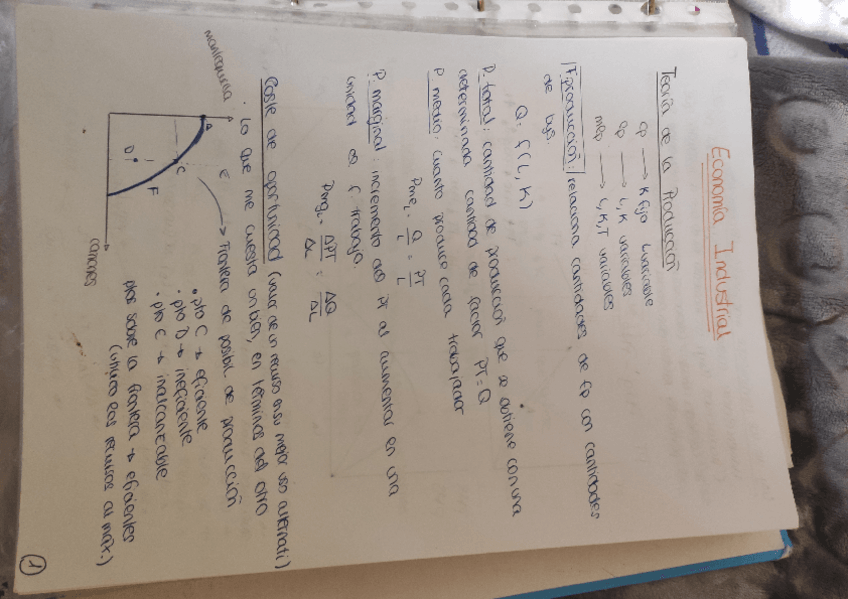 Economía Industrial
Teoría de la Producción
cp → K fijo L variable
lp → L, K variables
mlp → L, K, T variables
F. producción: relaciona cantidades de fp con cantidades
de bys.
Q = f(L, K)
P. total: cantidad de producción que se obtiene con una
determinada cantidad de factor PT = Q
P. medio: cuanto produce cada trabajador
Pme_L = Q/L = PT/L
P. marginal: incremento del PT al aumentar en una
unidad el f. trabajo.
Pmg_L = ΔPT/ΔL = ΔQ/ΔL
Coste de oportunidad (valor de un recurso en su mejor uso alternati)
· Lo que me cuesta un bien, en términos del otro
mantequilla
A
C
E
D
F
cañones
Frontera de posibil. de producción
• pto C → eficiente
• pto D → ineficiente
• pto E → inalcanzable
ptos sobre la frontera → eficientes
(utilizo los recursos al máx.)
1